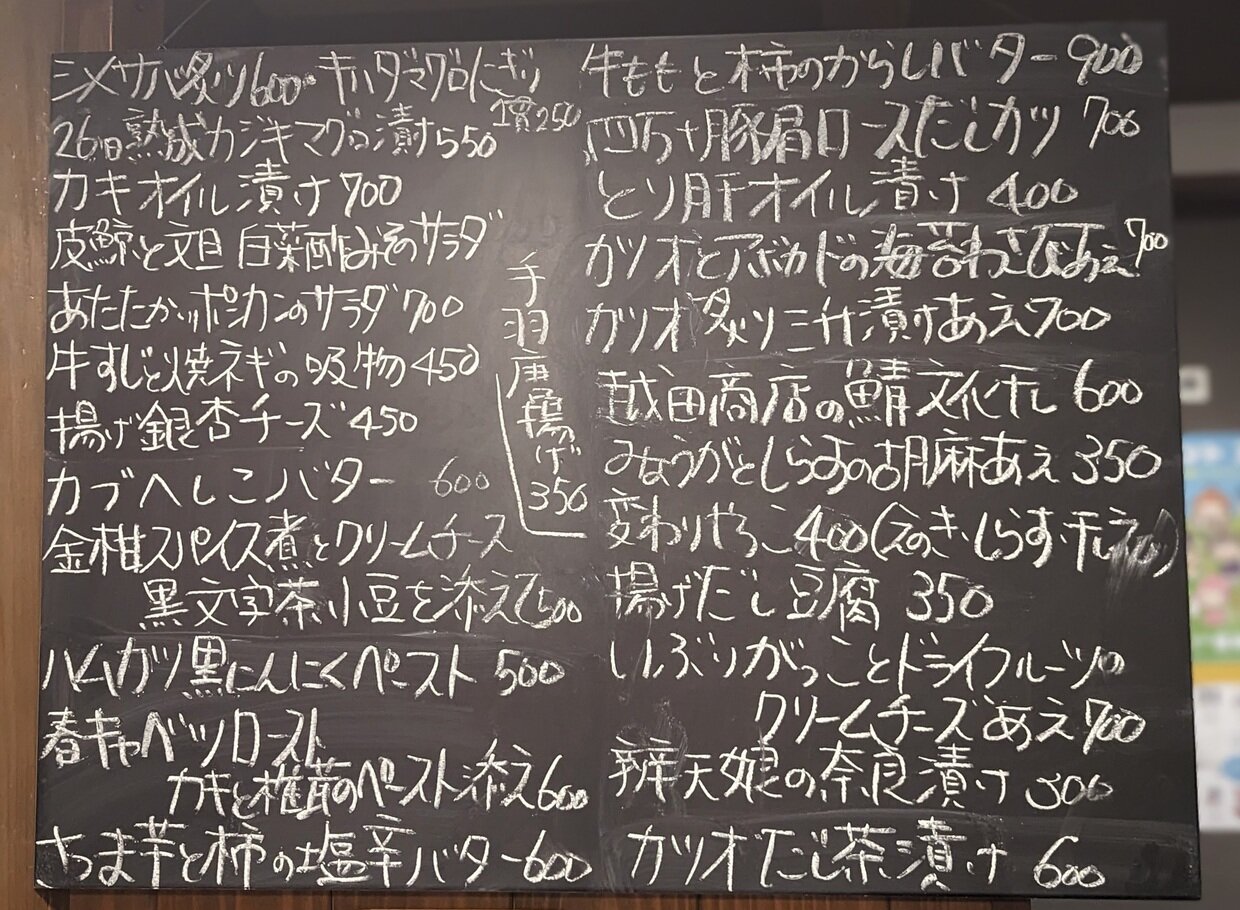 シメサバ炙り600 キハダマグロにぎり
1貫250
26日熟成カジキマグロ漬け550
カキオイル漬け700
皮鯨と文旦 白菜酢みそのサラダ
あたたかいポカンのサラダ700
牛すじと焼ネギの吸物450
揚げ銀杏チーズ450
カブへしこバター 600
金柑スパイス煮とクリームチーズ
黒文字茶小豆を添えて500
ハムカツ黒にんにくペースト 500
春キャベツロースト
カキと椎茸のペースト添え600
さつま芋と柿の塩辛バター600
手羽唐揚げ350
牛ももと柿のからしバター900
四万十豚肩ロースだしカツ 700
とり肝オイル漬け 400
カツオとアボカドの海苔わさびあえ700
カツオ炙り三升漬けあえ700
越田商店の鯖文化干し 600
みょうがとしらすの胡麻あえ 350
変わりやっこ400(えのき、しらす、干しえび)
揚げだし豆腐 350
いぶりがっことドライフルーツの
クリームチーズあえ700
辨天娘の奈良漬け 300
カツオだし茶漬け 600